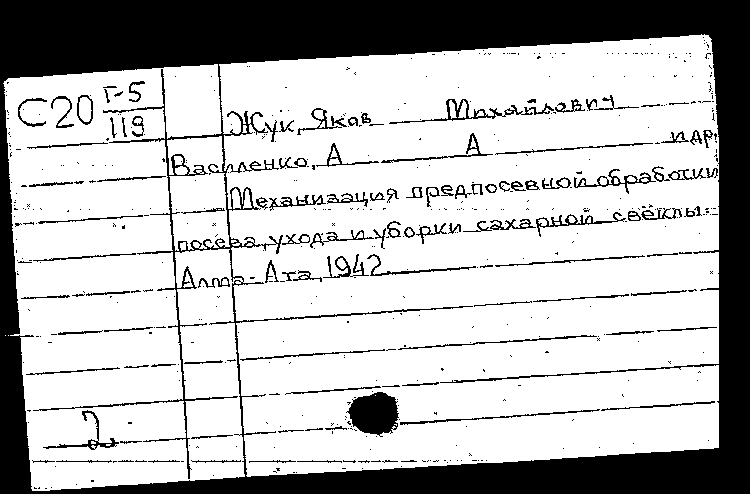 С20 Г-5
119
Жук, Яков Михайлович
Василенко, А А и др.
Механизация предпосевной обработки
посева, ухода и уборки сахарной свёклы.
Алма-Ата, 1942.
2